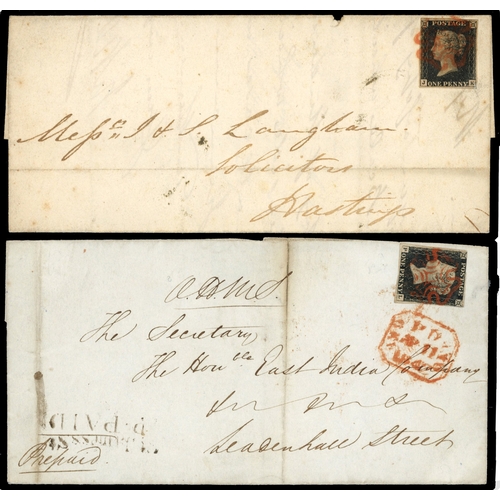 POSTAGE
ONE PENNY
Messrs J & S Langham
Solicitors
Hastings
POSTAGE
ONE PENNY
O.H.M.S.
The Secretary
The Honble East India Company
&c &c &c
Leadenhall Street
P. PAID
Prepaid